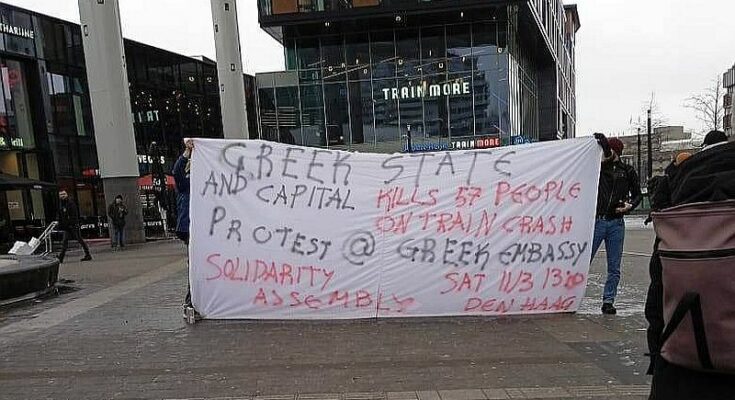 CATHARIJNE
TRAINMORE
TRAINMORE
GREEK STATE
AND CAPITAL KILLS 57 PEOPLE
ON TRAIN CRASH
PROTEST @ GREEK EMBASSY
SOLIDARITY SAT 11/3 13:00
ASSEMBLY DEN HAAG